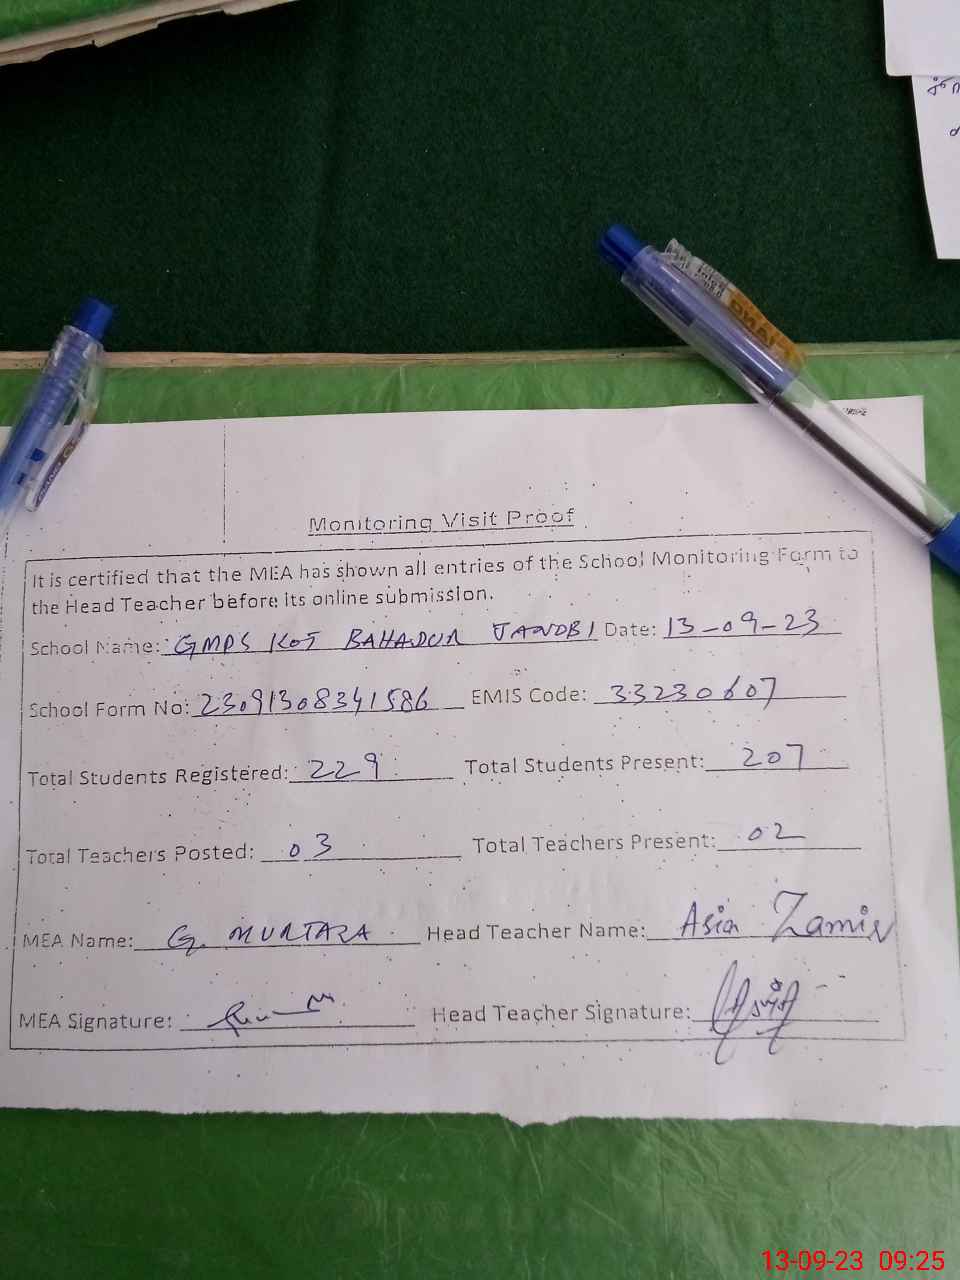 Monitoring Visit Proof
It is certified that the MEA has shown all entries of the School Monitoring Form to
the Head Teacher before its online submission.
School Name: GMPS KOT BAHADUR JANOBI Date: 13-09-23
School Form No: 23091308341586 EMIS Code: 33230607
Total Students Registered: 229 Total Students Present: 207
Total Teachers Posted: 03 Total Teachers Present: 02
MEA Name: G. MURTAZA Head Teacher Name: Asia Zamir
MEA Signature: Head Teacher Signature:
13-09-23 09:25